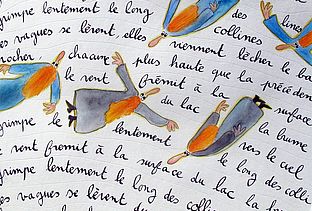 grimpe lentement le long des collines
les vagues se lèvent, elles viennent lécher le ba
rocher, chacune plus haute que la précéden
le vent frémit à la surface
du lac
grimpe le lentement la brume
vers le ciel
vent frémit à la surface du lac
grimpe lentement le long des colli
les vagues se lèvent du lac la